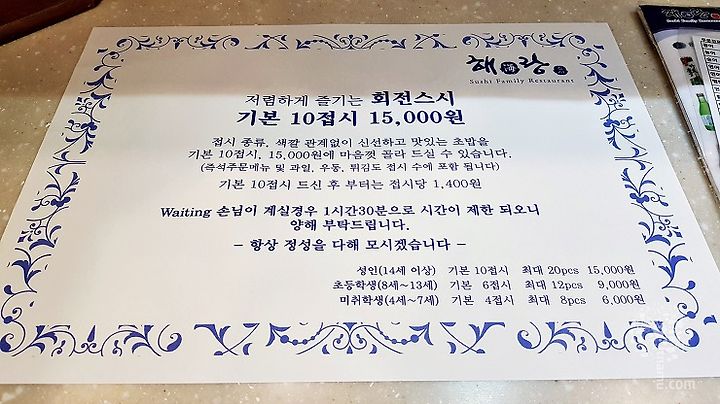 해랑
Sushi Family Restaurant
저렴하게 즐기는 회전스시
기본 10접시 15,000원
접시 종류, 색깔 관계없이 신선하고 맛있는 초밥을
기본 10접시, 15,000원에 마음껏 골라 드실 수 있습니다.
(즉석주문메뉴 및 과일, 우동, 튀김도 접시 수에 포함 됩니다)
기본 10접시 드신 후 부터는 접시당 1,400원
Waiting 손님이 계실경우 1시간30분으로 시간이 제한 되오니
양해 부탁드립니다.
- 항상 정성을 다해 모시겠습니다 -
성인(14세 이상) 기본 10접시 최대 20pcs 15,000원
초등학생(8세~13세) 기본 6접시 최대 12pcs 9,000원
미취학생(4세~7세) 기본 4접시 최대 8pcs 6,000원